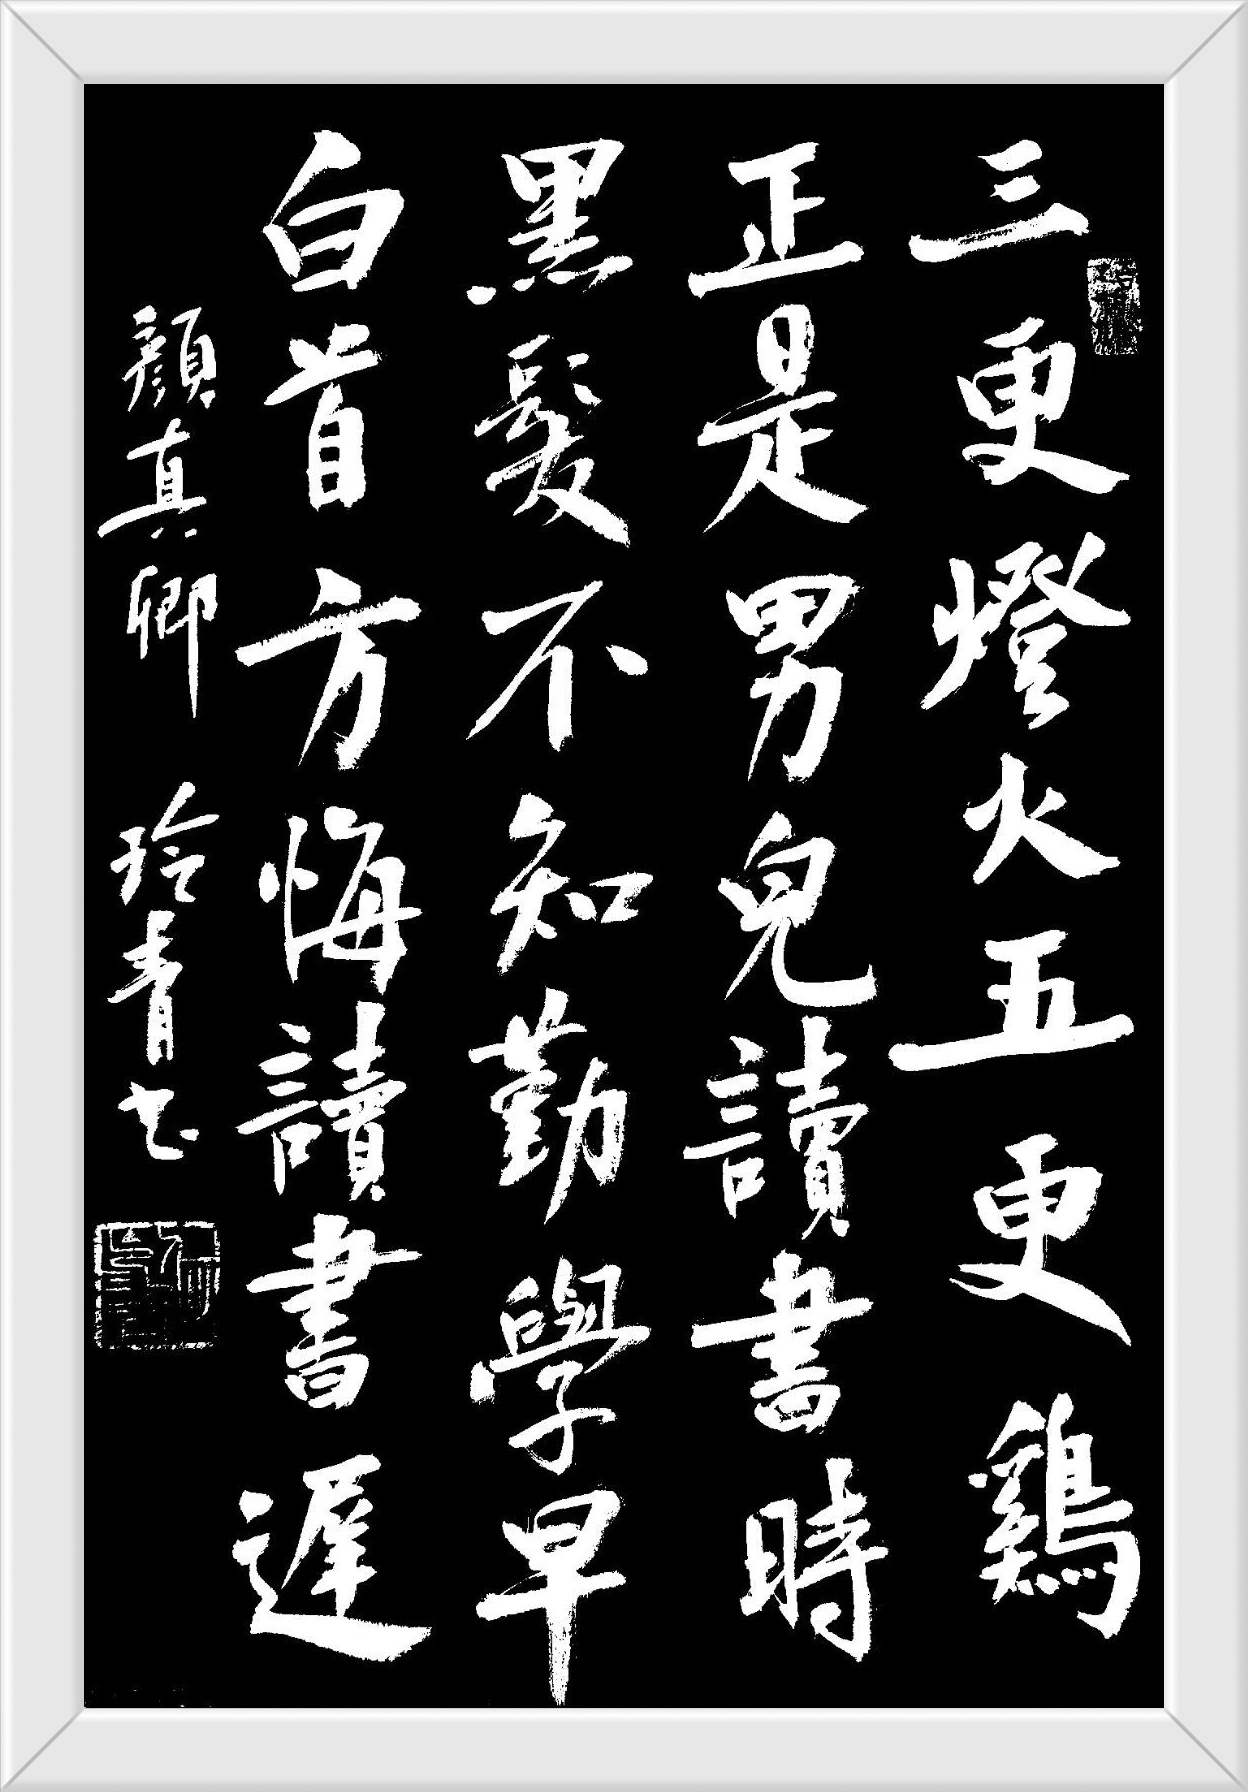 三更燈火五更鷄
正是男兒讀書時
黑髮不知勤學早
白首方悔讀書遲
顔真卿 玲青书